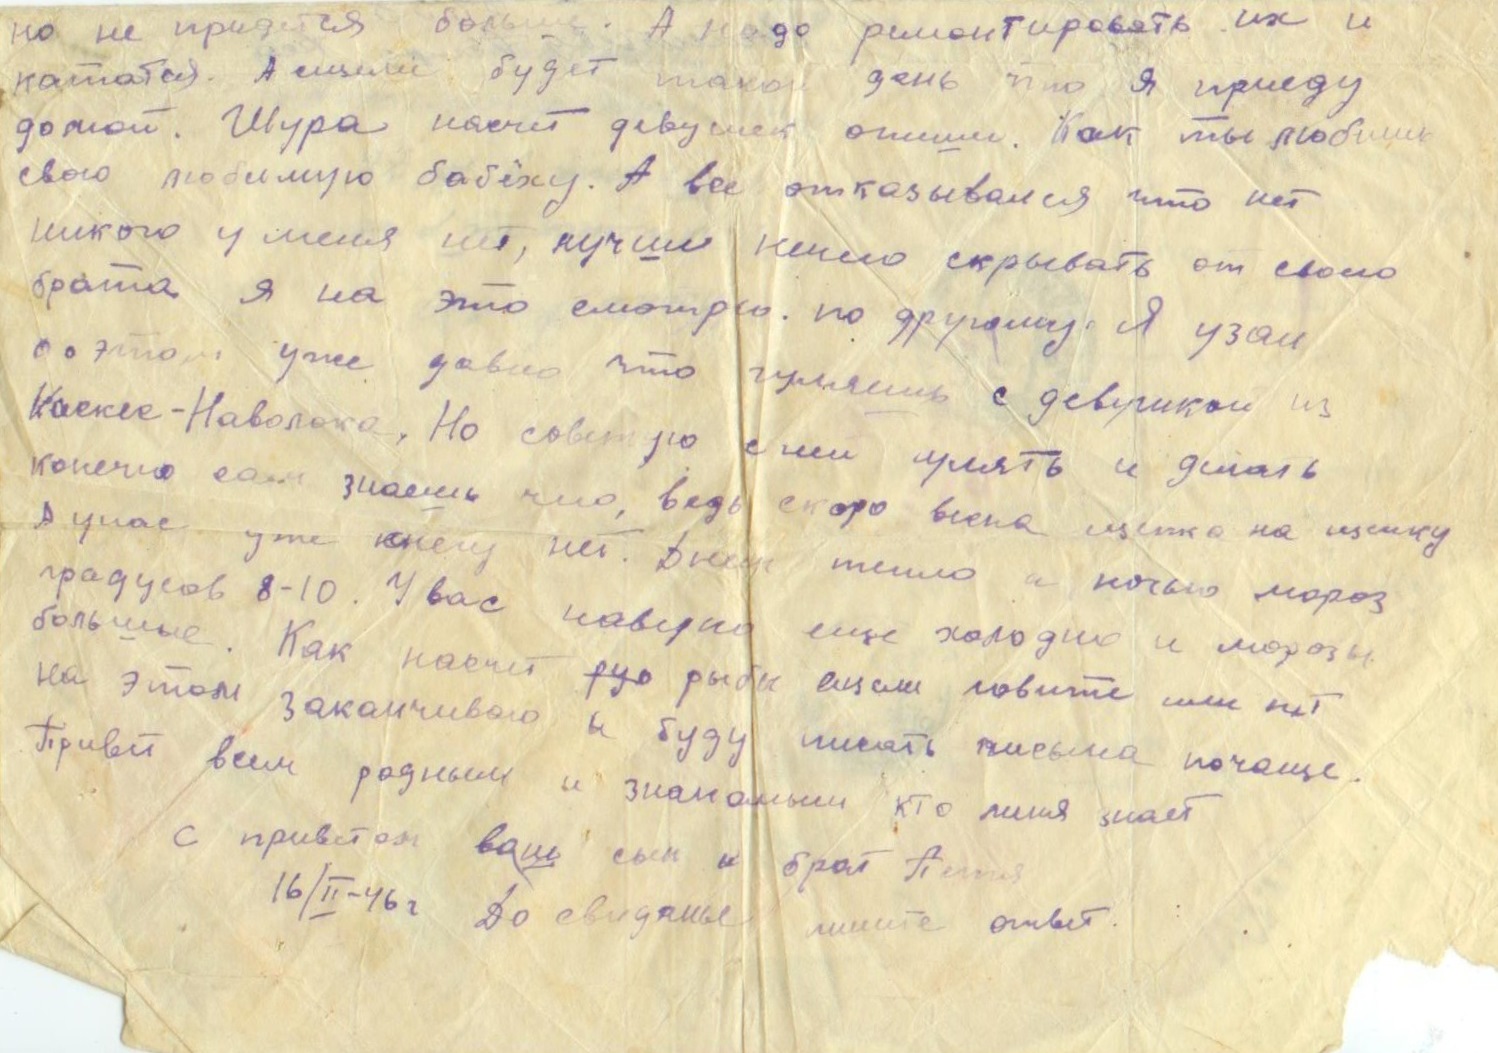 но не придется больше. А надо ремонтировать их и
кататся. А ежели будет такой день что я приеду
домой. Шура насчет девушек опиши. Как ты любишь
свою любимую бабёху. А все отказывался что нет
никого у меня нет, лучши нечего скрывать от своего
брата я на это смотрю. по другому. Я узал
о этом уже давно что гуляешь с девушкой из
Каскес-Наволока. Но советую с ней гулять и делать
конечно сам знаешь что, ведь скоро весна щепка на щепку
А унас уже снегу нет. Днем тепло а ночью мороз
градусов 8-10. У вас наверно еще холодно и морозы
большые. Как насчет рыбы ежели ловите или нет
на этом заканчиваю и буду писать письма почаще.
Привет всем родным и знакомым кто меня знает
С приветом ваш сын и брат Петя
16/II-46г До свиданье пишите ответ.